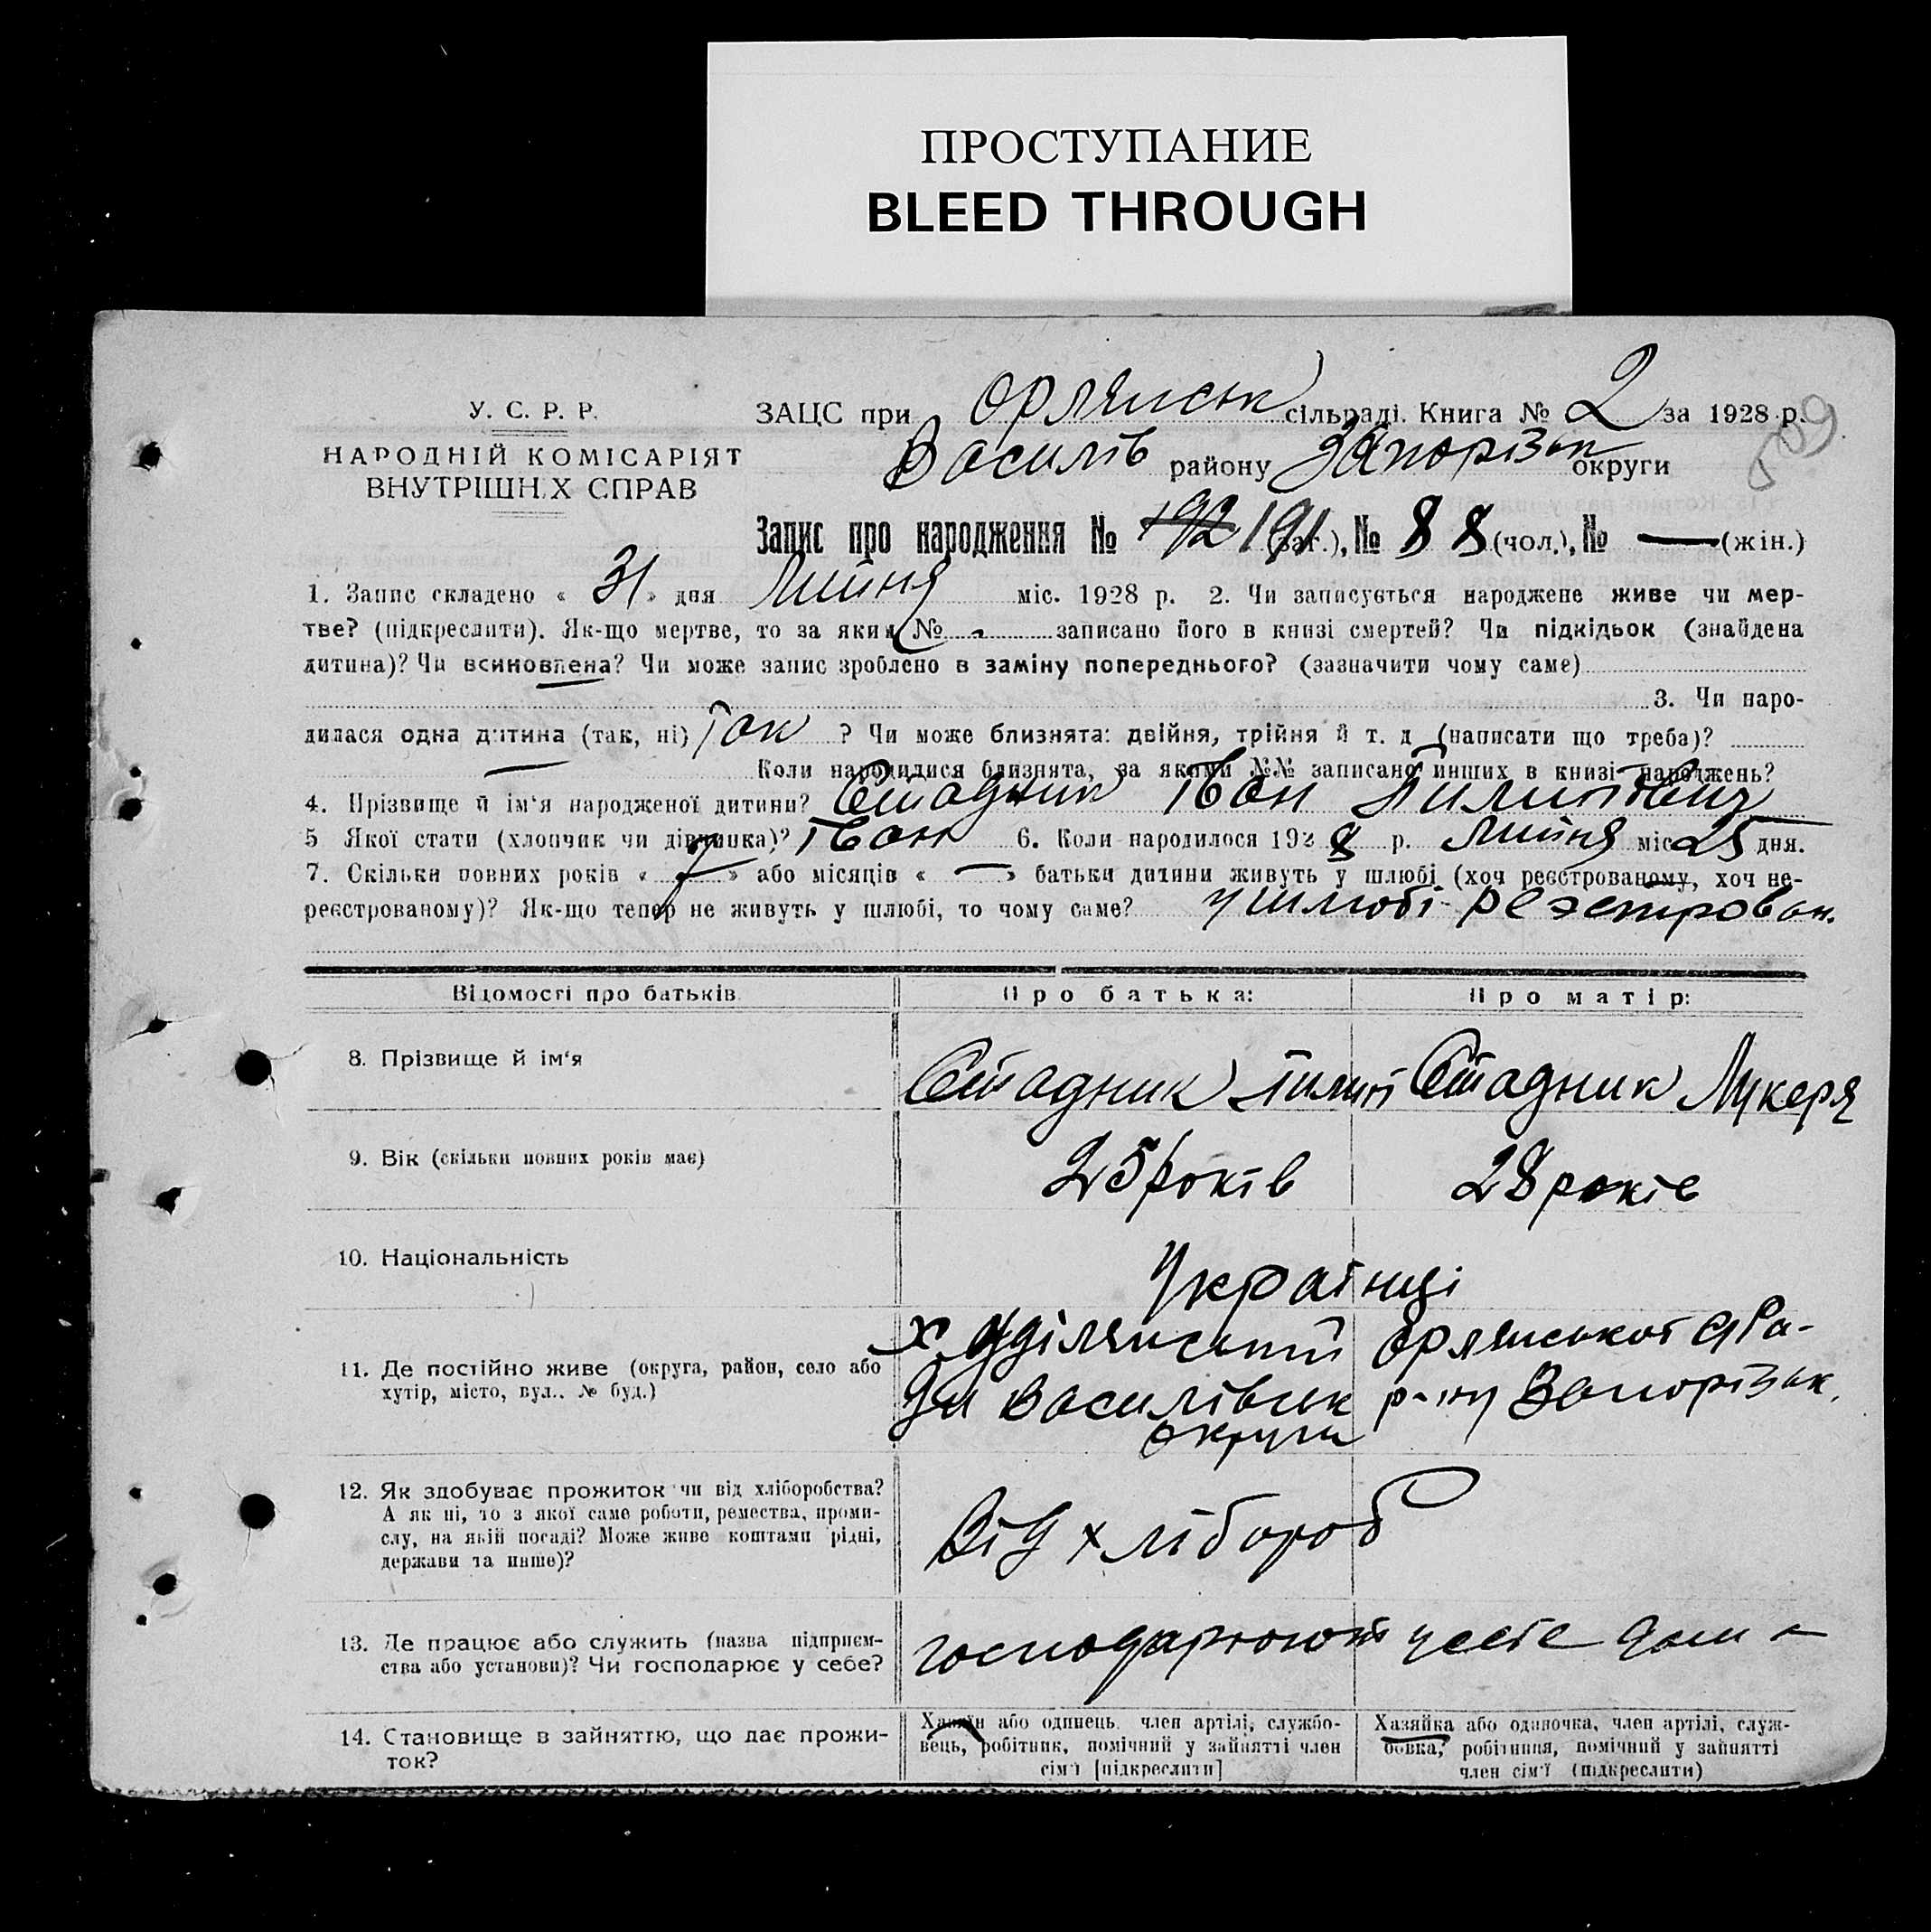 ПРОСТУПАНИЕ
BLEED THROUGH
У. С. Р. Р.
НАРОДНІЙ КОМІСАРІЯТ
ВНУТРІШНІХ СПРАВ
ЗАЦС при Орлянськ сільраді. Книга № 2 за 1928 р.
509
Василів району Запорізьк округи
Запис про народження № 192 191 (заг.), № 88 (чол.), № — (жін.)
1. Запис складено « 31 » дня Липня міс. 1928 р. 2. Чи записується народжене живе чи мер-
тве? (підкреслити). Як-що мертве, то за яким № - записано його в книзі смертей? Чи підкідьок (знайдена
дитина)? Чи всиновлена? Чи може запис зроблено в заміну попереднього? (зазначити чому саме)
3. Чи наро-
дилася одна дитина (так, ні) Так ? Чи може близнята: двійня, трійня й т. д (написати що треба)?
— Коли народилися близнята, за якими №№ записано инших в книзі народжень?
4. Прізвище й ім‘я народженої дитини? Стадник Іван Пилипович
5 Якої стати (хлопчик чи дівчинка)? Іван 6. Коли народилося 1928 р. Липня міс 25 дня.
7. Скільки повних років « 7 » або місяців « — » батьки дитини живуть у шлюбі (хоч реєстрованому, хоч не-
реєстрованому)? Як-що тепер не живуть у шлюбі, то чому саме? у шлюбі
Відомості про батьків
Про батька:
Про матір:
8. Прізвище й ім‘я
Стадник Пилип
Стадник Лукеря
9. Вік (скільки повних років має)
25 років
28 років
10. Національність
Українці
11. Де постійно живе (округа, район, село або
хутір, місто, вул.. № буд.)
х. Уділянський Орлянської
Василівськ р-ну Запорізьк.
округи
12. Як здобуває прожиток чи від хліборобства?
А як ні, то з якої саме роботи, ремества, проми-
слу, на якій посаді? Може живе коштами рідні,
держави та инше)?
Від хлібороб
13. Де працює або служить (назва підприєм-
ства або установи)? Чи господарює у себе?
господарюють у себе дома
14. Становище в зайняттю, що дає прожи-
ток?
Хазяїн або одинець, член артілі, службо-
вець, робітник, помічний у зайнятті член
сім‘ї [підкреслити]
Хазяйка або одиночка, член артілі, служ-
бовка, робітниця, помічний у зайнятті
член сім‘ї (підкреслити)